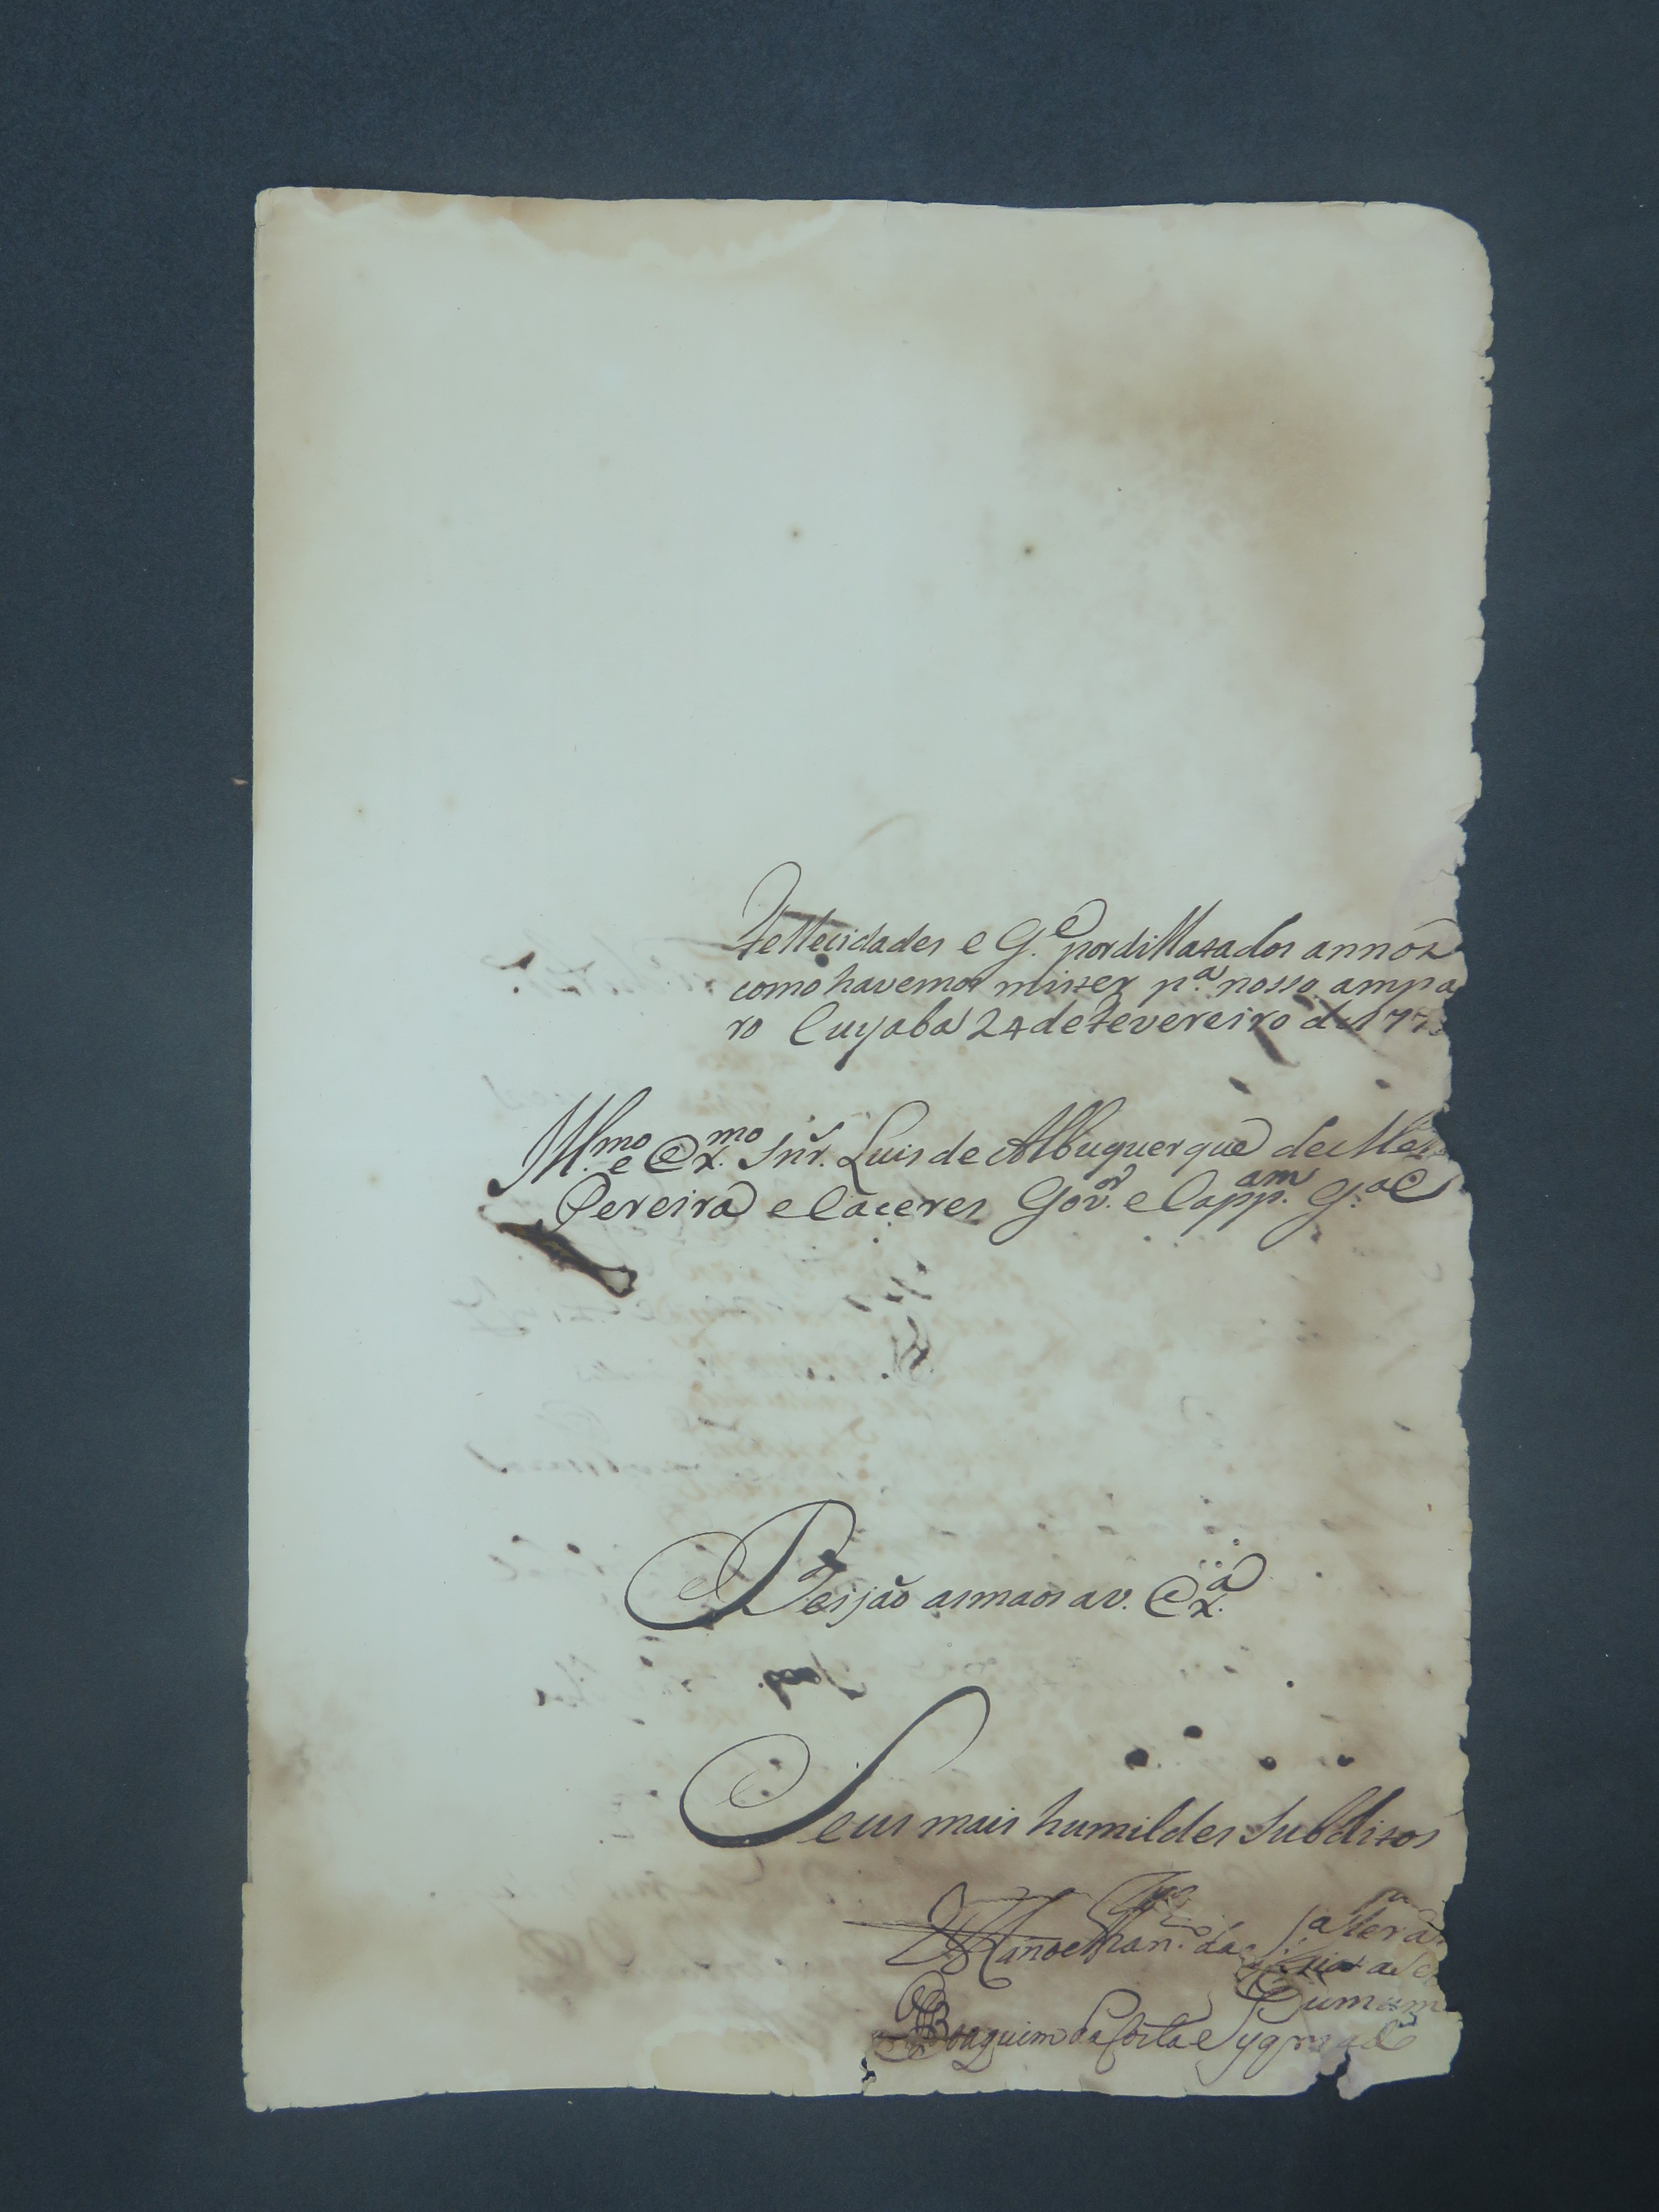 Fellecidades e G.e pordillatados annos
como havemos mister p.a nosso ampa
ro Cuyaba 24 de Fevereiro de 177
Ill.mo e Ex.mo Snr. Luis de Albuquerque de Mel
Pereira e Caceres Gov.or e Capp.am G.al
Beijaõ as maos a v. Ex.a
Seus mais humildes Subditos
Manoel da
Joaquim da Costa e Syqr